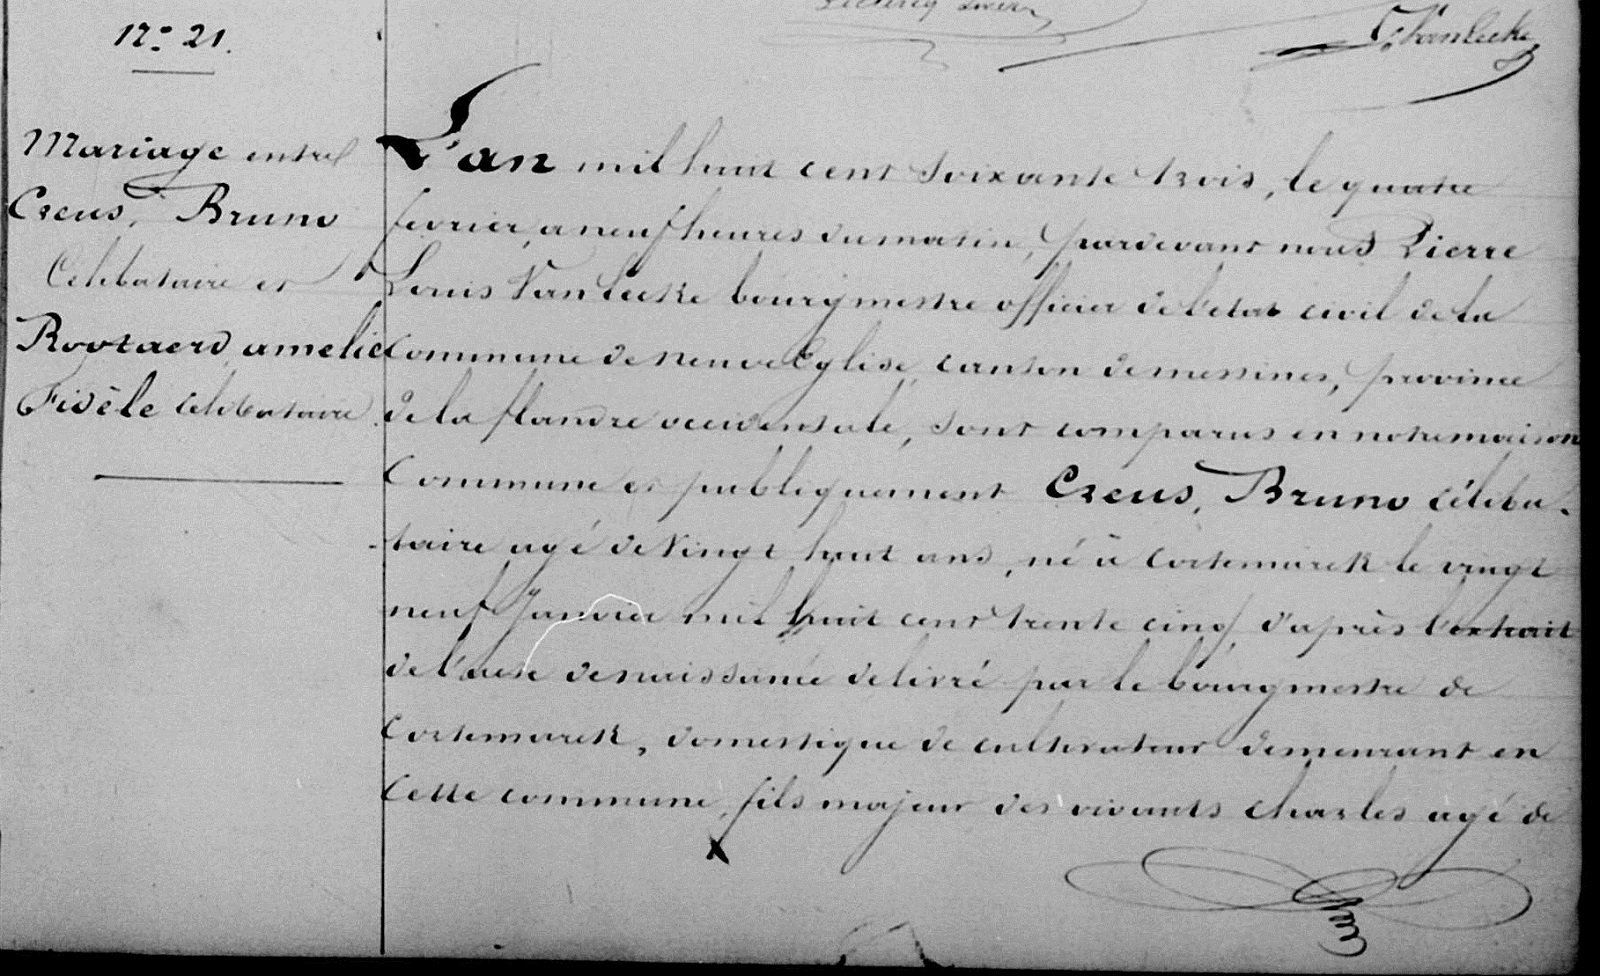 Vanlecke
N° 21.
Mariage entre
Creus, Bruno
Célibataire et
Rootaerd, amelie
Fidèle célibataire.
L'an mil huit cent soixante trois, le quatre
fevrier, a neuf heures du matin, pardevant nous Pierre
Louis Vanlecke bourgmestre officier de l'etat civil de la
commune de neuve Eglise, canton de messines, province
de la flandre occidentale, sont comparus en notre maison
Commune et publiquement Creus, Bruno céliba-
taire agé de vingt huit ans, né à Cortemarck le vingt
neuf Janvier mil huit cent trente cinq d'après l'extrait
de l'acte de naissance delivré par le bourgmestre de
Cortemarck, domestique de cultivateur demeurant en
cette commune, fils majeur des vivants Charles agé de